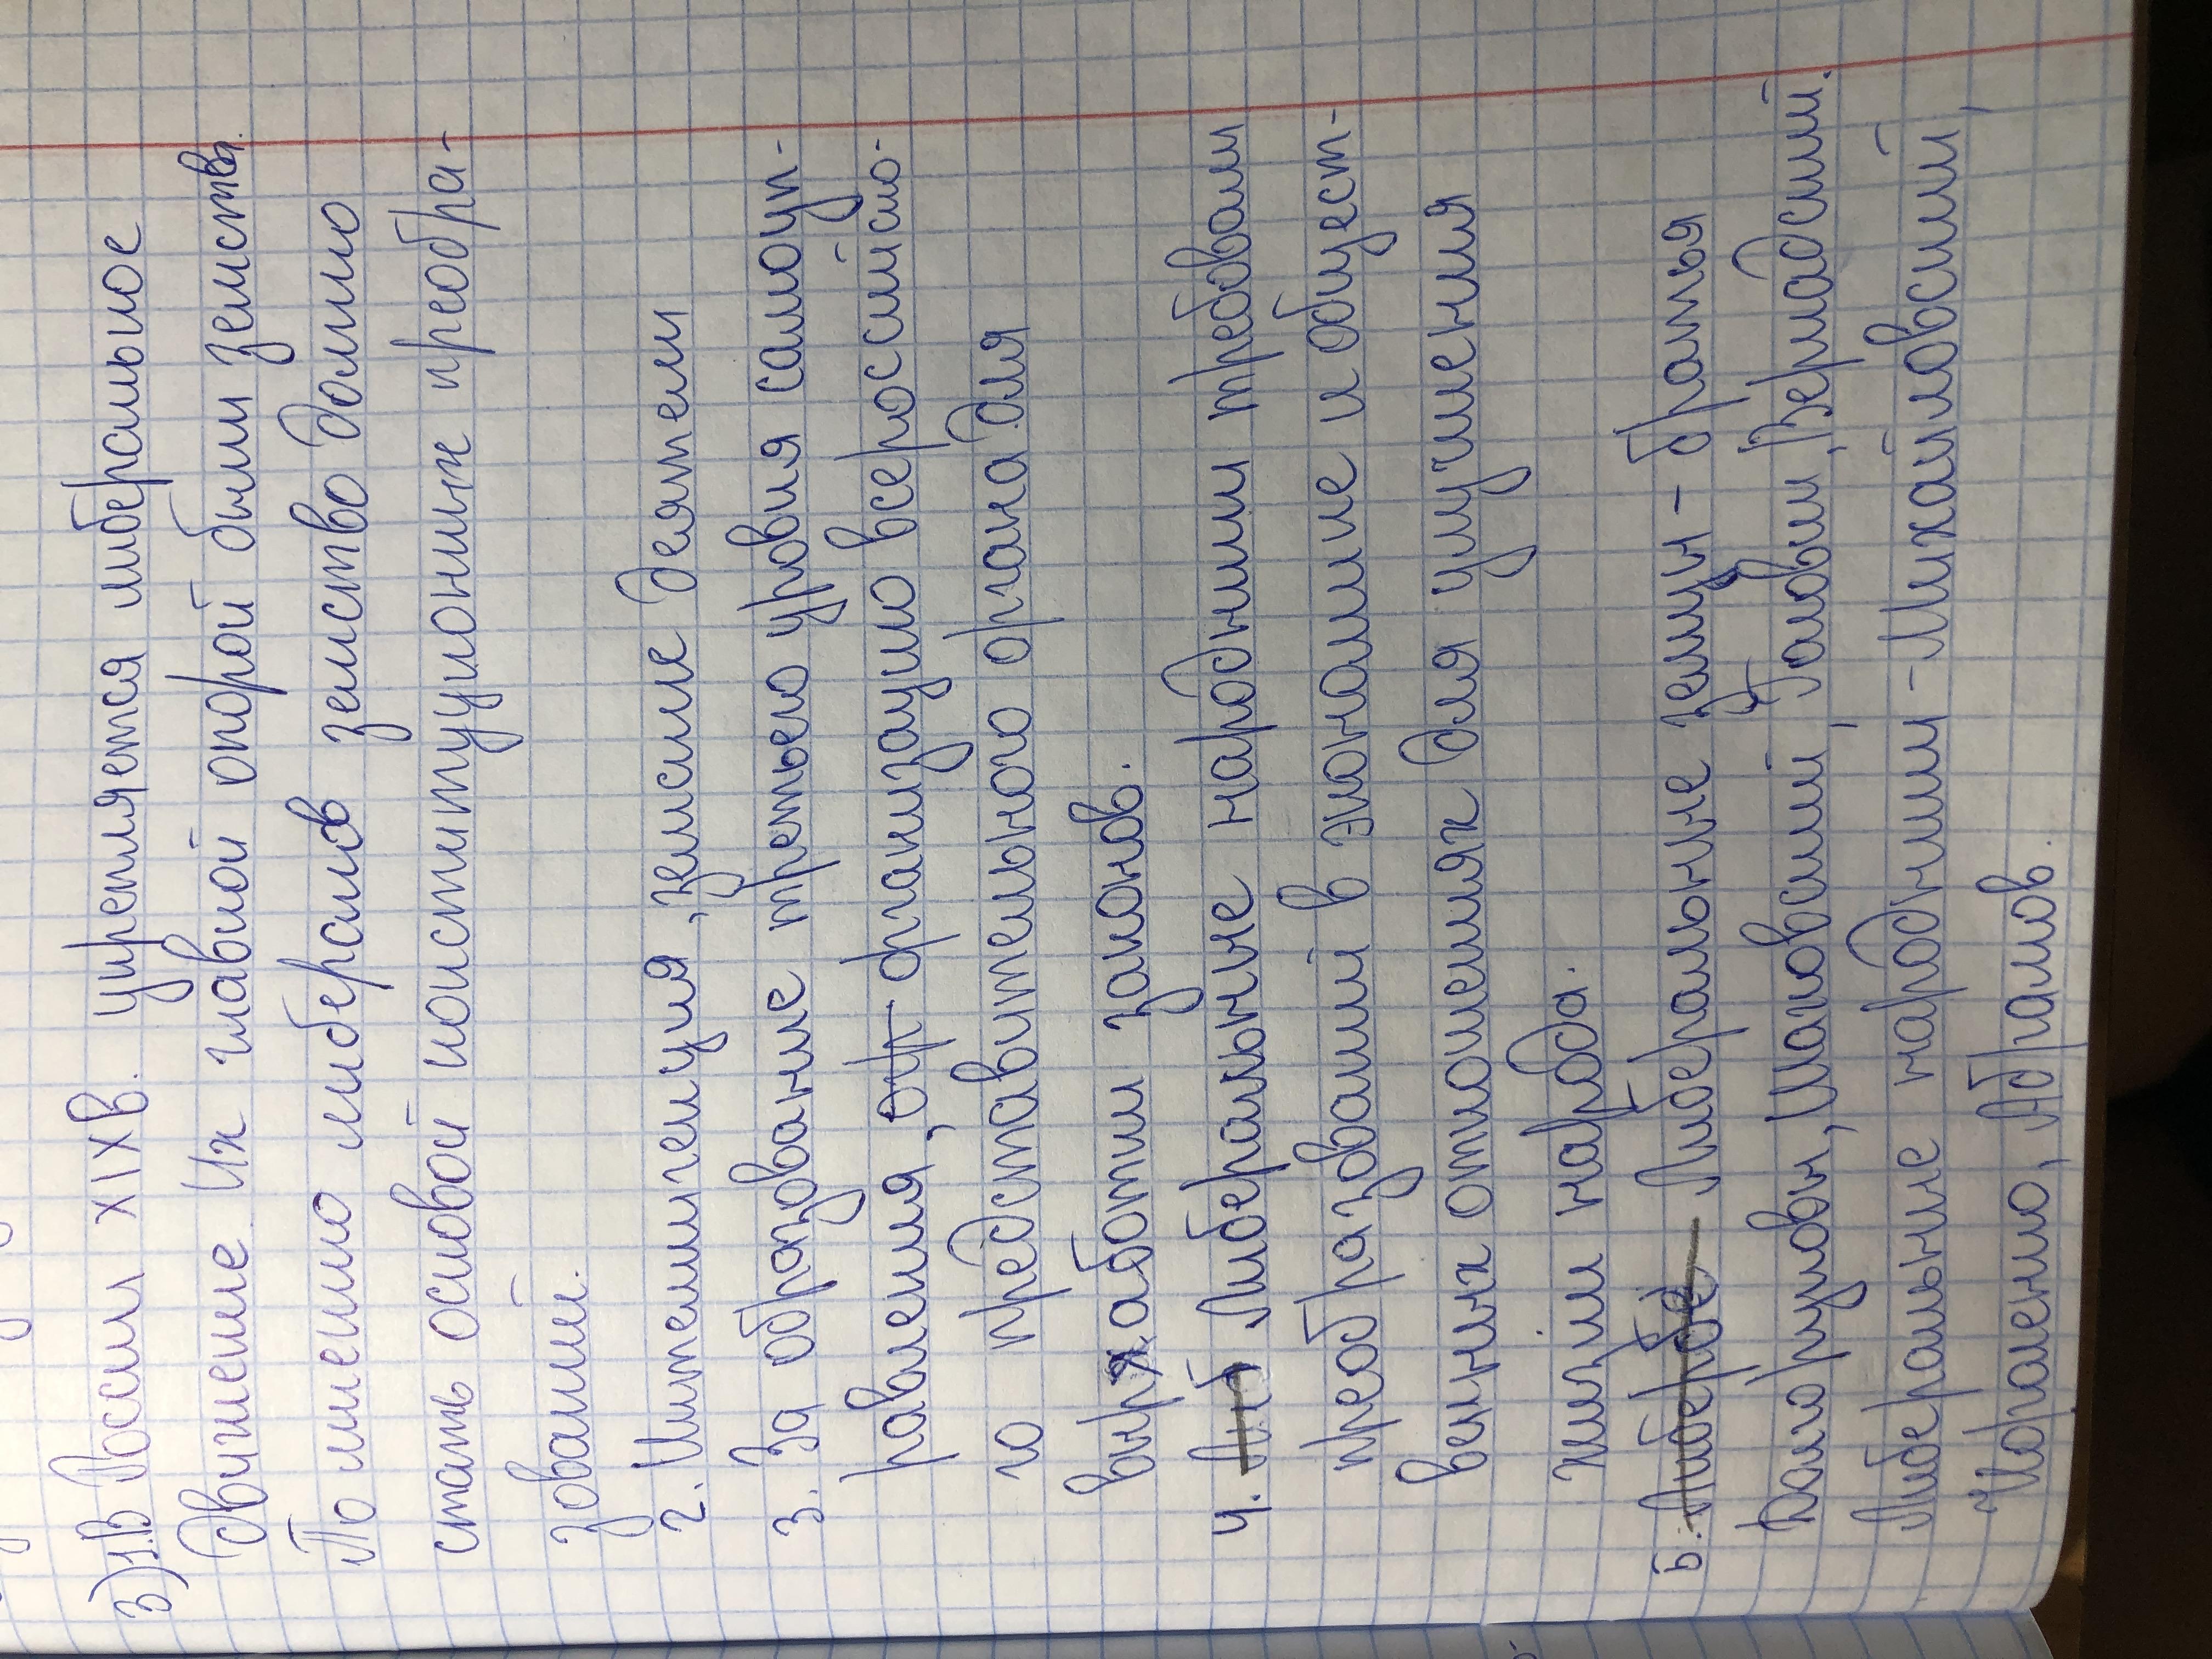 3) 1. В Росси XIX в. укрепляется либеральное
движение. Их главной опорой были земства.
По мнению либералов земство должно
стать основой конституционных преобра-
зований.
2. Интеллигенция, земские деятели
3. За образование третьего уровня самоуп-
равления, отр организацию всероссийско-
го представительного органа для
вырязаботки законов.
4. Либ Либеральные народники требовали
преобразований в экономике и общест-
венных отношениях для улучшения
жизни народа.
5. Либерое Либеральные земцы - братья
Долгоруковы, Шаховский, Гаковы, Вернадский.
Либеральные народники - Михайловский,
Короленко, Абрамов.